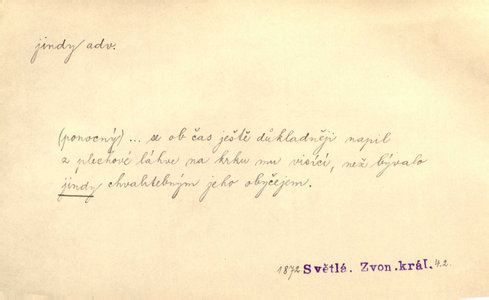 jindy adv.
(ponocný)... se ob čas ještě důkladněji napil
z plechové láhve na krku mu visící, než bývalo
jindy chvalitebným jeho obyčejem.
1872 Světlá. Zvon.král. 42.